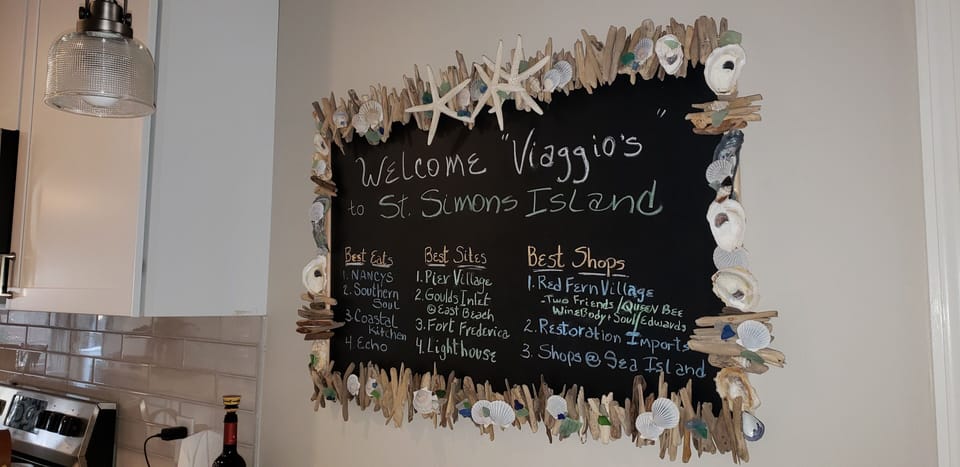 Welcome "Viaggio's"
to St. Simons Island
Best Eats
1. Nancys
2. Southern
Soul
3. Coastal
Kitchen
4. Echo
Best Sites
1. Pier Village
2. Goulds Inlet
@ East Beach
3. Fort Frederica
4. Lighthouse
Best Shops
1. Red Fern Village
- Two Friends / Queen Bee
Wine Body + Soul / Edwards
2. Restoration Imports
3. Shops @ Sea Island